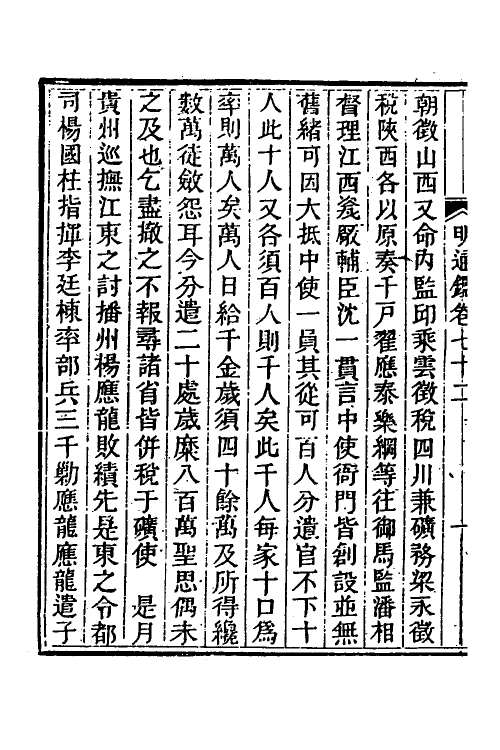 明通鑑卷七十二　一
朝徵山西又命內監邱乘雲徵稅四川兼礦務梁永徵
稅陝西各以原奏千戸翟應泰樂綱等往御馬監潘相
督理江西瓷厰輔臣沈一貫言中使衙門皆創設並無
舊緒可因大抵中使一員其從可百人分遣官不下十
人此十人又各須百人則千人矣此千人每家十口爲
率則萬人矣萬人日給千金歲須四十餘萬及所得纔
數萬徒斂怨耳今分遣二十處歲糜八百萬聖思偶未
之及也乞盡撤之不報尋諸省皆併稅于礦使　是月
貴州巡撫江東之討播州楊應龍敗績先是東之令都
司楊國柱指揮李廷棟率部兵三千勦應龍應龍遣子